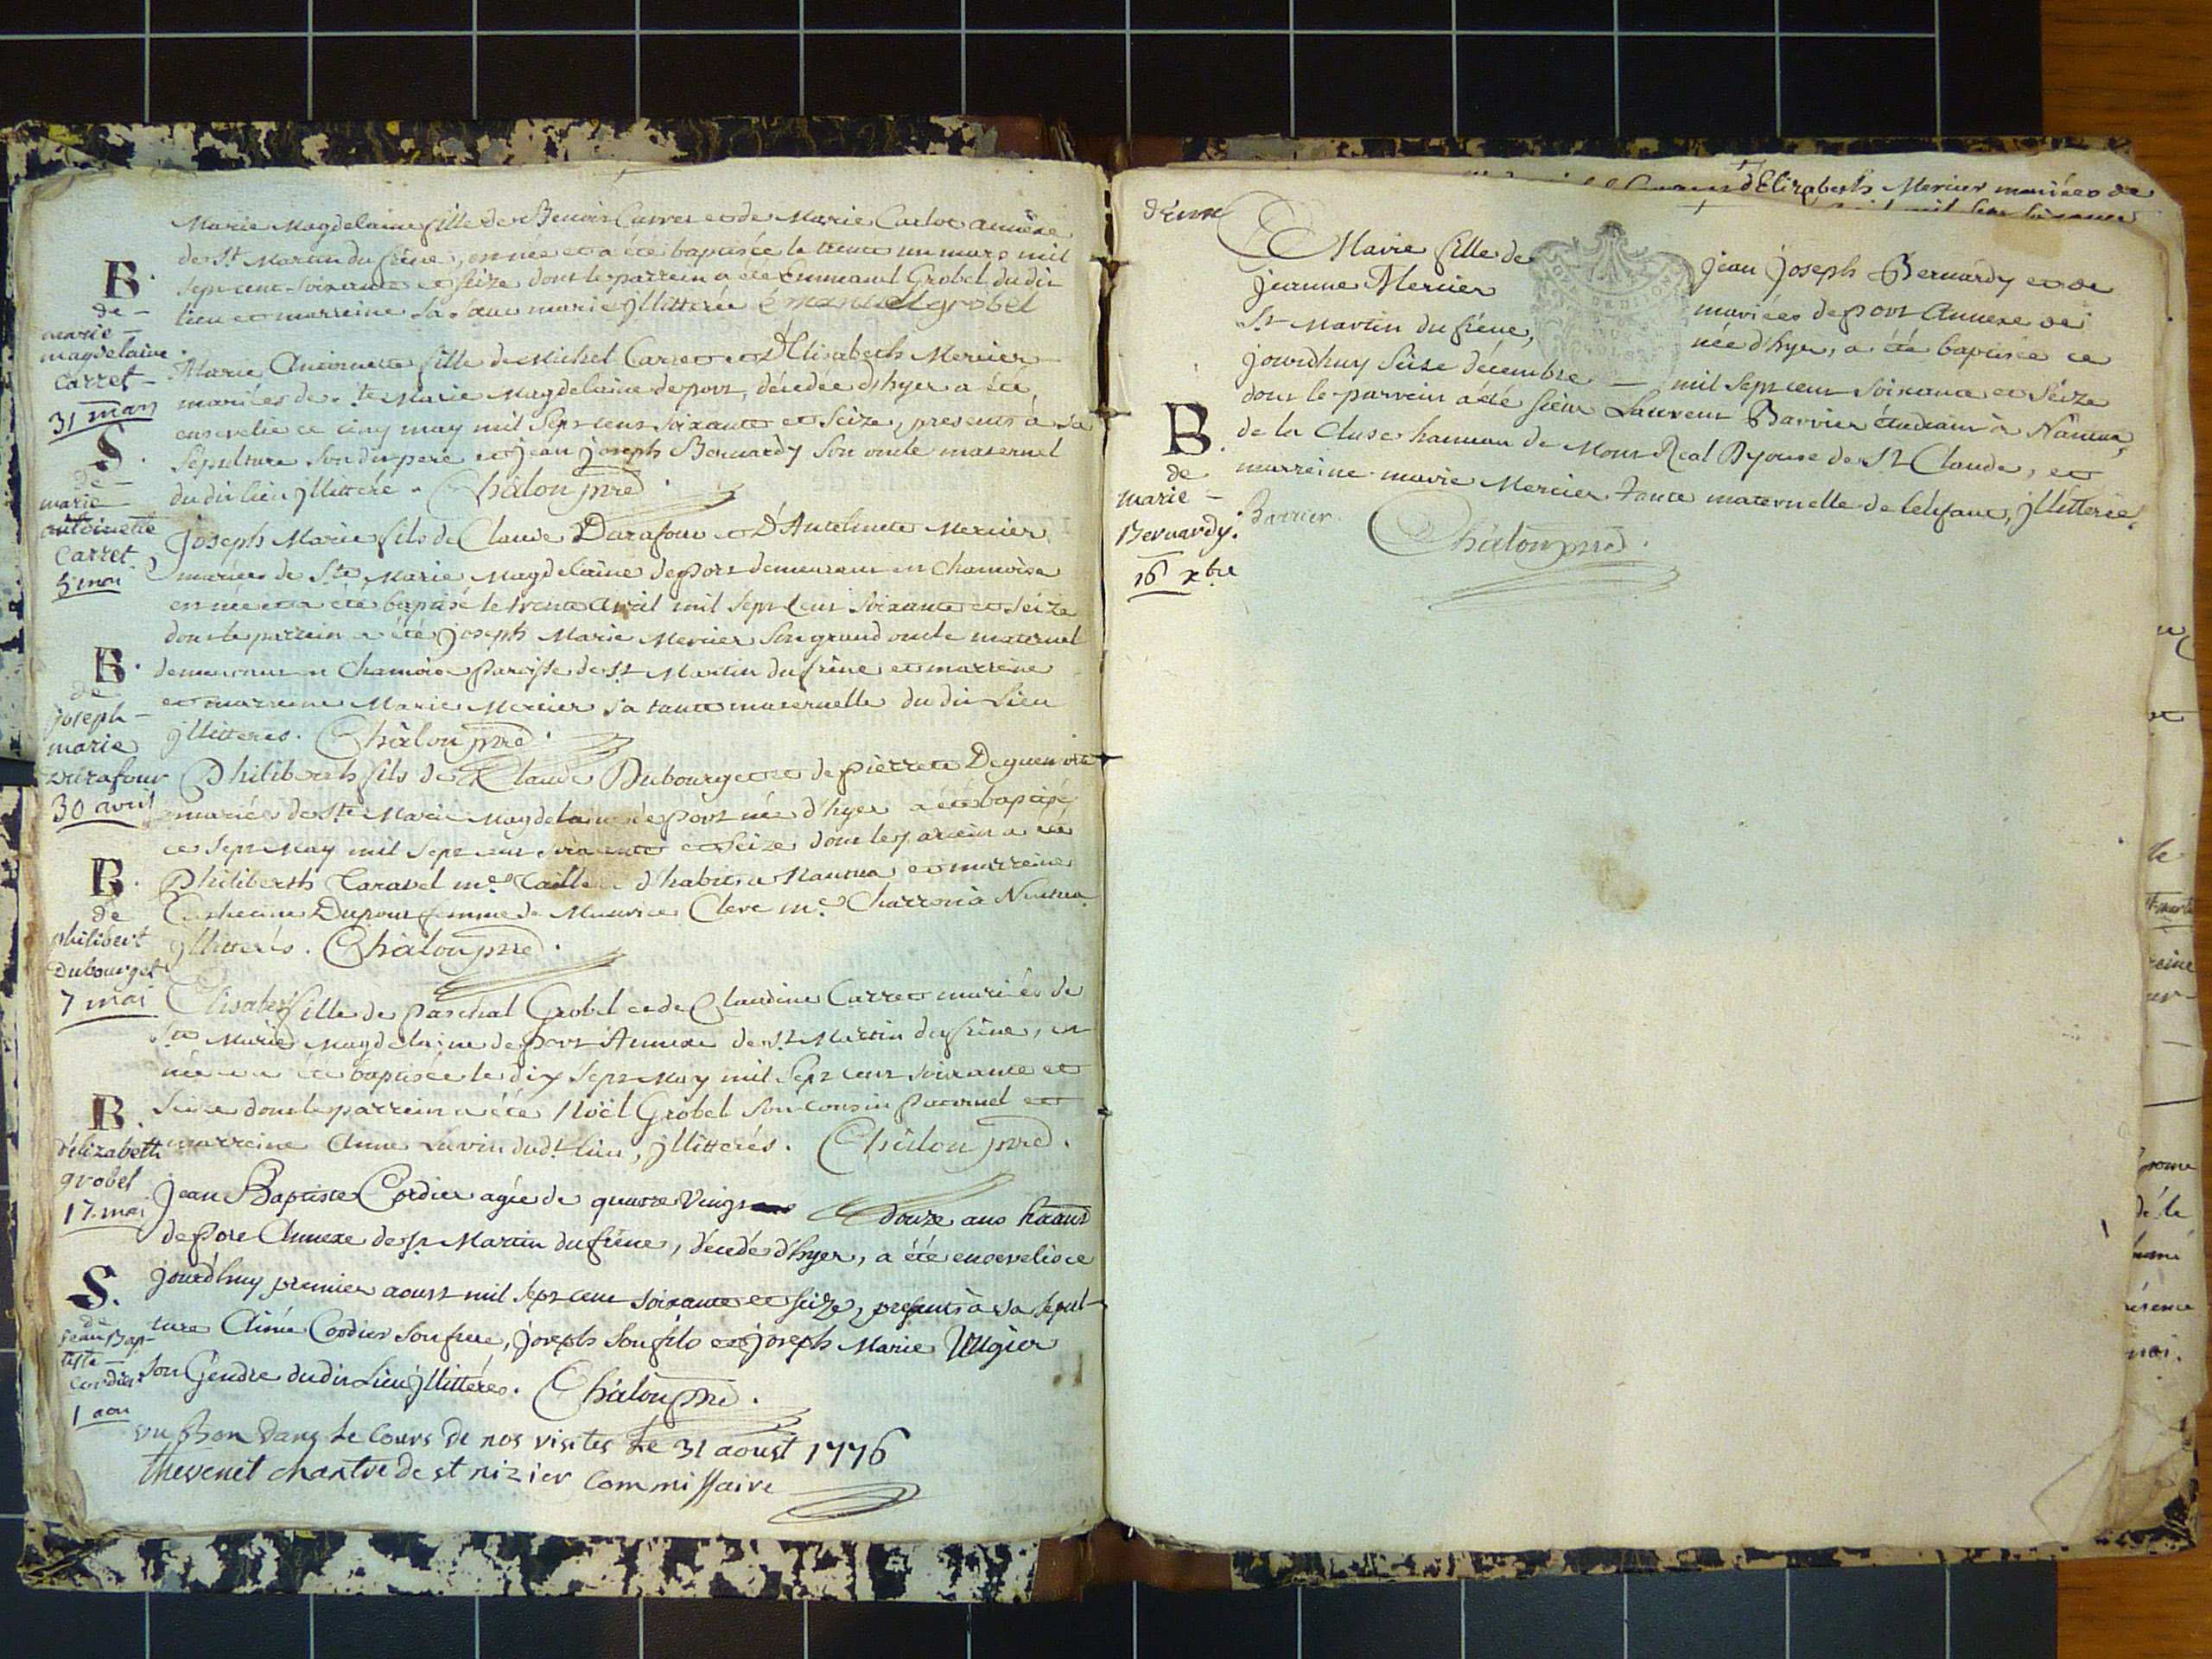 Marie Magdelaine fille de Benoit Carret et de Marie Carlot annexe
de St Martin du frêne, est née et a été baptisée le trente un mars mil
sept cent soixante et seize dont le parrein a été Emmanuel Grobel du dit
lieu et marreine sa sœur marie jllitterée émanuel grobel
B.
de
marie
magdelaine
Carret
31 mars
Marie Antoinette fille de Michel Carret et d'Elisabeth Mercier
mariés de Ste Marie Magdelaine de port, décédée d'hyer a été
ensevelie ce cinq may mil sept cent soixante et seize, presents à sa
sépulture son dit pere et jean joseph Bernardy son oncle maternel
du dit lieu jllitteré. Châlon pre.
S.
de
marie
antoinette
Carret
5 mai
Joseph Marie fils de Claude Darafour et d'Antelmete Mercier
mariés de Ste Marie Magdelaine de port demeurant en Chamoise
est né et a été baptisé le trente avril mil sept cent soixante et seize
dont le parrein a été joseph Marie Mercier son grand oncle maternel
demeurant en Chamoise paroisse de St Martin du frêne et marreine
et marreine Marie Mercier sa tante maternelle du dit lieu
jllitteres. Châlon pre.
B.
de
joseph
marie
darafour
30 avril
Philiberth fils de Claude Dubourget et de pierrete
mariés de Ste Marie Magdelaine de port né d'hyer a été baptisé
ce sept may mil sept cent soixante et seize dont le parrein a été
Philiberth Caravel me tailleur d'habit a Nantua et marreine
Catherine Dupont femme de Maurice Clerc me Charron à Nantua
jllitterés. Châlon pre.
B.
de
philibert
Dubourget
7 mai
Elisabet fille de Paschal Grobel et de Claudine Carret mariés de
Ste Marie Magdelaine de port Annexe de St Martin du frêne, est
née et a été baptisée le dix sept may mil sept cent soixante et
seize dont le parrein a été Noël Grobel son cousin paternel et
marreine Anne Luvin dudt lieu, jllitterés. Châlon pre.
B.
d'élizabeth
grobel
17 mai
Jean Baptiste Cordier agée de quatre vingt douze ans
de port Annexe de St Martin du frêne, décédé d'hyer, a été enseveli ce
jourd'huy premier aoust mil sept cent soixante et seize, presents à sa sepul-
ture Aimé Cordier son frere, joseph son fils et joseph Marie
son Gendre dudit lieu jllitterés. Châlon pre.
S.
de
jean Bap-
tiste
Cordier
1 aou
vu Bon dans le cours de nos visites Le 31 aoust 1776
thevenet chantre de st nizier commissaire
d'Elizabeth Mercier mariées de
Marie fille de jean joseph Bernardy et de
jeanne Mercier mariées de port Annexe de
St Martin du frêne, née d'hyer, a été baptisée ce
jourdhuy seize décembre mil sept cent soixante et seize
dont le parrein a été sieur Laurent Barrier étudiant à Nantua,
de la Cluse hameau de Mont Real Dyocese de St Claude, et
marreine marie Mercier tante maternelle de l'enfant, jllitterée.
Barrier. Châlon pre.
B.
de
marie
Bernardy.
16 xbre